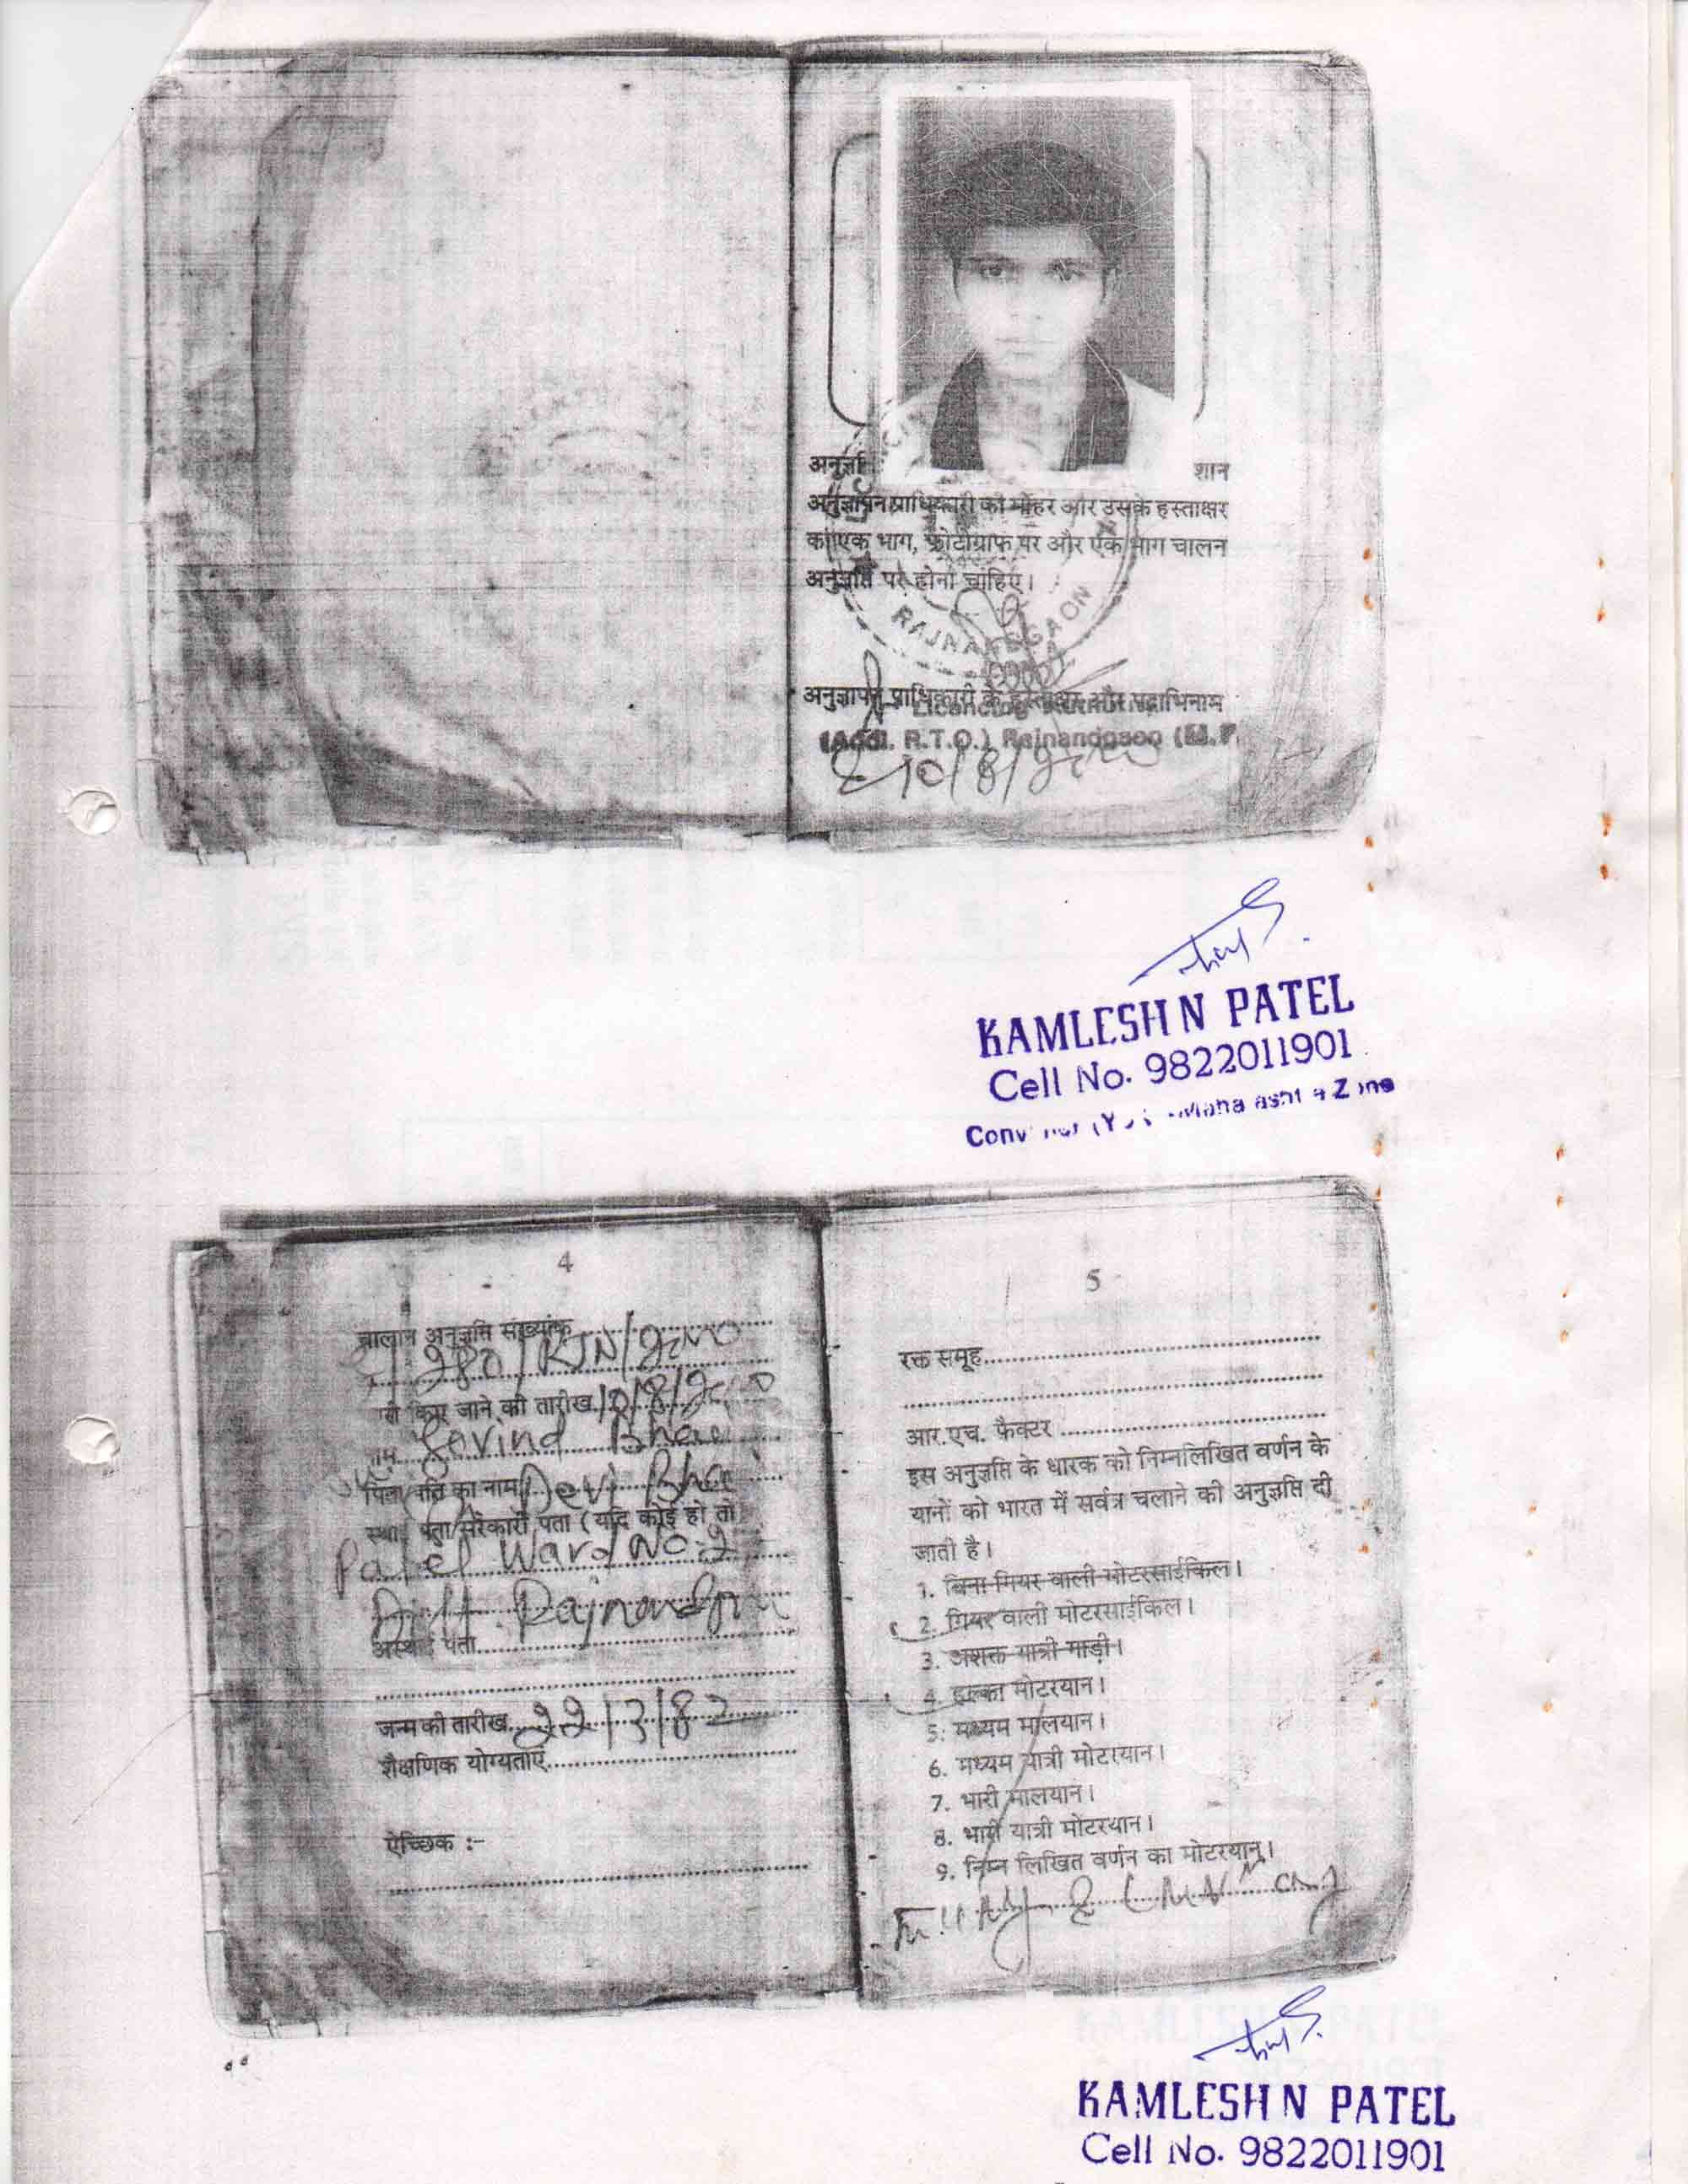 अनुज्ञप्ति
शान
अनुज्ञापन प्राधिकारी की मोहर और उसके हस्ताक्षर
का एक भाग, फ़ोटोग्राफ पर और एक भाग चालन
अनुज्ञप्ति पर होना चाहिए।
RAJNANDGAON
अनुज्ञापन प्राधिकारी के हस्ताक्षर और पदाभिनाम
Licencing
R.T.O.) Rajnandgaon (M.P.
KAMLESH N PATEL
Cell No. 9822011901
4
चालान अनुज्ञप्ति संख्यांक
/RJN/
किए जाने की तारीख
Govind Bhai
पिता/पति का नाम Devi Bhai
पता/सरकारी पता (यदि कोई हो तो
Patel Ward No. 2
Distt. Rajnandgaon
अस्थाई पता
जन्म की तारीख 22/3/82
शैक्षणिक योग्यताएं
ऐच्छिक :-
5
रक्त समूह
आर.एच. फैक्टर
इस अनुज्ञप्ति के धारक को निम्नलिखित वर्णन के
यानों को भारत में सर्वत्र चलाने की अनुज्ञप्ति दी
जाती है।
1. बिना गियर वाली मोटरसाईकिल।
2. गियर वाली मोटरसाईकिल।
3. अशक्त यात्री गाड़ी।
4. हल्का मोटरयान।
5. मध्यम मालयान।
6. मध्यम यात्री मोटरयान।
7. भारी मालयान।
8. भारी यात्री मोटरयान।
9. निम्न लिखित वर्णन का मोटरयान।
KAMLESH N PATEL
Cell No. 9822011901